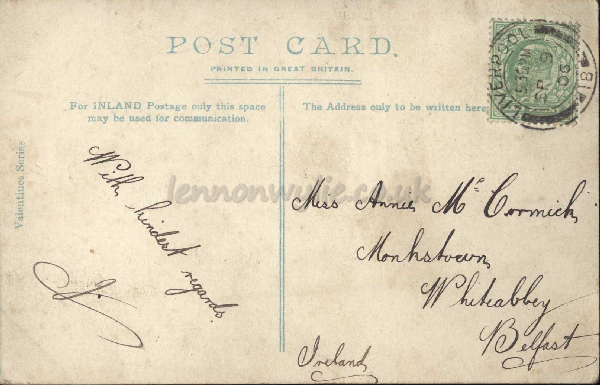 POST CARD.
PRINTED IN GREAT BRITAIN.
For INLAND Postage only this space
may be used for communication.
The Address only to be written here.
Valentines Series
With kindest regards.
J.
Miss Annie McCormick
Monkstown
Whiteabbey
Belfast
Ireland
LIVERPOOL
SP 9
08
81
lennonwylie.co.uk